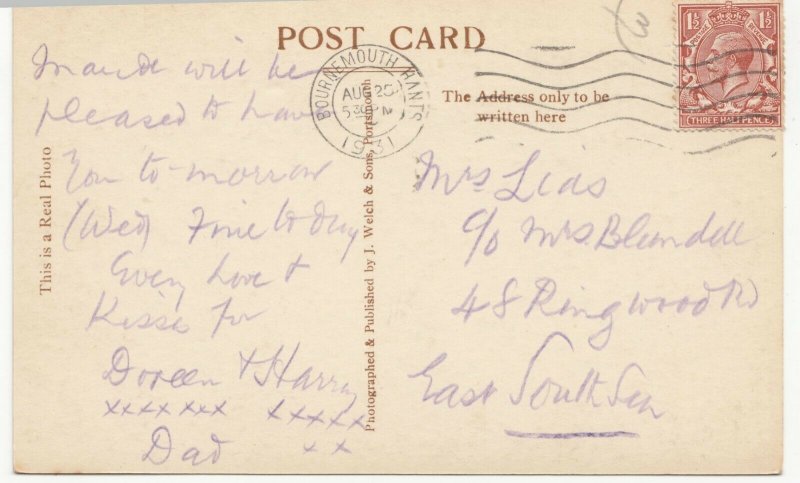 POST CARD
Maude will be
pleased to have
You to-morrow
(Wed) Fine to day
Every Love &
Kisses for
Doreen & Harry
xxxx xxx xxxxx
xx
Dad
This is a Real Photo
Photographed & Published by J. Welch & Sons, Portsmouth
BOURNEMOUTH HANTS
AUG 25
5 30 PM
1931
The Address only to be
written here
1½ 1½
POSTAGE REVENUE
THREE HALFPENCE
Mrs Lias
c/o Mrs. Blundell
48 Ringwood Rd
East South Sea